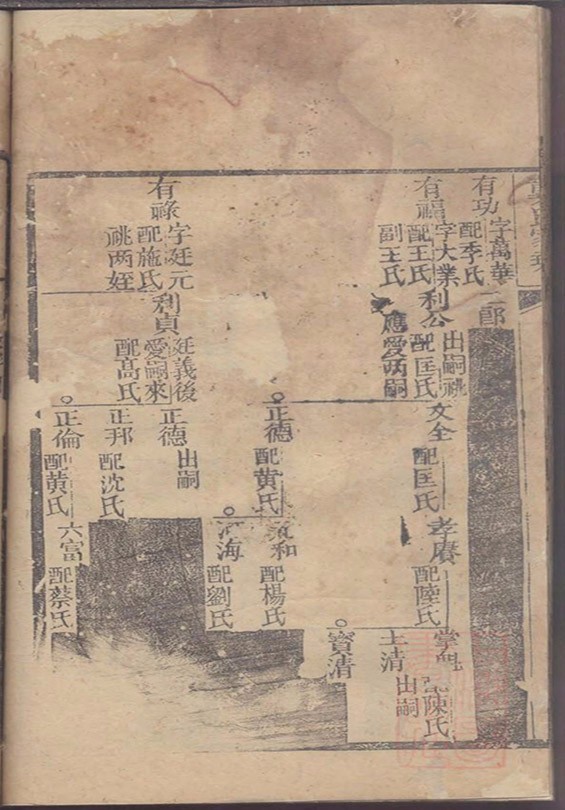 有功
字萬華
配季氏
二郎
有福
字大業
配王氏
副王氏
利公
出嗣祧
配匡氏
應愛丙嗣
文全
配匡氏
孝賡
配陸氏
掌
配陳氏
士清
出嗣
寶清
正德
配黄氏
和
配楊氏
海
配劉氏
有祿
字廷元
配施氏
祧两姪
利貞
廷義後
愛嗣來
配高氏
正德
出嗣
正邦
配沈氏
正倫
配黄氏
六富
配蔡氏